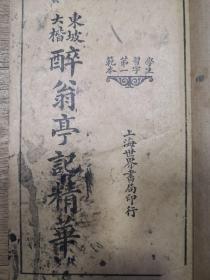 東坡
大楷
醉翁亭記精華
學生
習字
第一
範本
上海世界書局印行